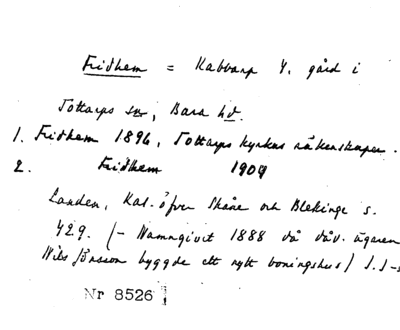 Fridhem = Kabbarp 4, gård i
Tottarps sn, Bara hd.
1. Fridhem 1896, Tottarps kyrkas räkenskaper.
2. Fridhem 1904
Landen, Kat. öfver Skåne och Blekinge s.
429. (- Namngivet 1888 då dåv. ägaren
Nils Jönsson byggde ett nytt boningshus) J. J-s
Nr 8526